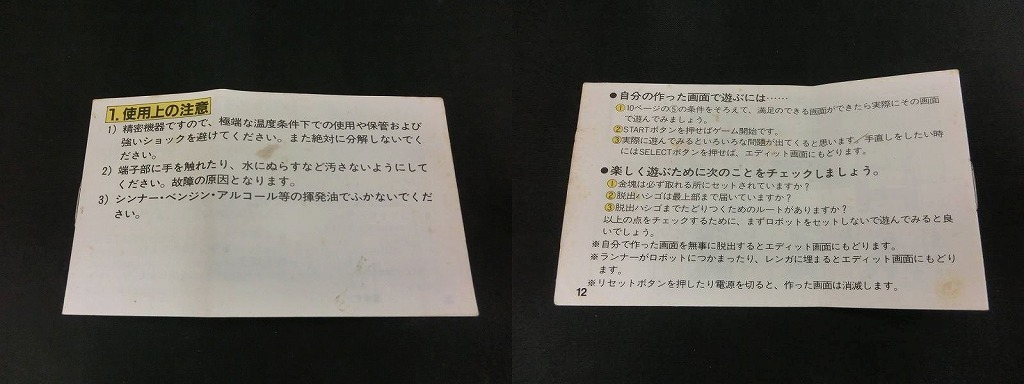 1. 使用上の注意
1) 精密機器ですので、極端な温度条件下での使用や保管および
強いショックを避けてください。また絶対に分解しないでく
ださい。
2) 端子部に手を触れたり、水にぬらすなど汚さないようにして
ください。故障の原因となります。
3) シンナー・ベンジン・アルコール等の揮発油でふかないでくだ
さい。
●自分の作った画面で遊ぶには……
①10ページの⑤の条件をそろえて、満足のできる画面ができたら実際にその画面
で遊んでみましょう。
②STARTボタンを押せばゲーム開始です。
③実際に遊んでみるといろいろな問題が出てくると思います。手直しをしたい時
にはSELECTボタンを押せば、エディット画面にもどります。
●楽しく遊ぶために次のことをチェックしましょう。
①金塊は必ず取れる所にセットされていますか?
②脱出ハシゴは最上部まで届いていますか?
③脱出ハシゴまでたどりつくためのルートがありますか?
以上の点をチェックするために、まずロボットをセットしないで遊んでみると良
いでしょう。
※自分で作った画面を無事に脱出するとエディット画面にもどります。
※ランナーがロボットにつかまったり、レンガに埋まるとエディット画面にもどり
ます。
※リセットボタンを押したり電源を切ると、作った画面は消滅します。
12